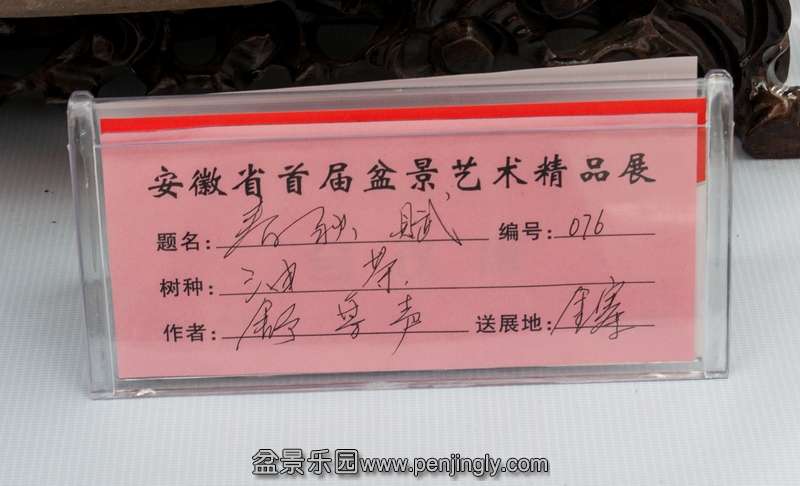 安徽省首届盆景艺术精品展
题名: 春秋赋 编号: 076
树种: 油茶
作者: 舒 声 送展地: 金寨
盆景乐园www.penjingly.com